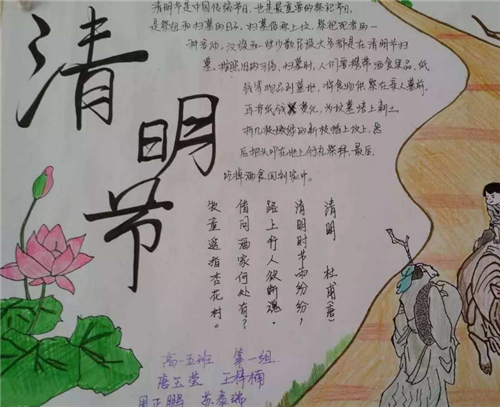 清明节
清明节是中国传统节日,也是最重要的祭祀节日,
是祭祖和扫墓的日子。扫墓俗称上坟,祭祀死者的一
种活动。汉族和一些少数民族大多都是在清明节扫
墓。按照旧的习俗,扫墓时,人们要携带酒食果品,纸
钱等物品到墓地,将食物供祭在亲人墓前,
再将纸钱焚化,为坟墓培上新土,
折几枝嫩绿的新枝插上坟上,然
后把头叩在地上行礼祭拜,最后
吃掉酒食回到家中。
清明 杜甫(唐)
清明时节雨纷纷,
路上行人欲断魂。
借问酒家何处有?
牧童遥指杏花村。
高一五班 第一组
唐玉莹 王梓楠
周正鹏 苏泰瑞